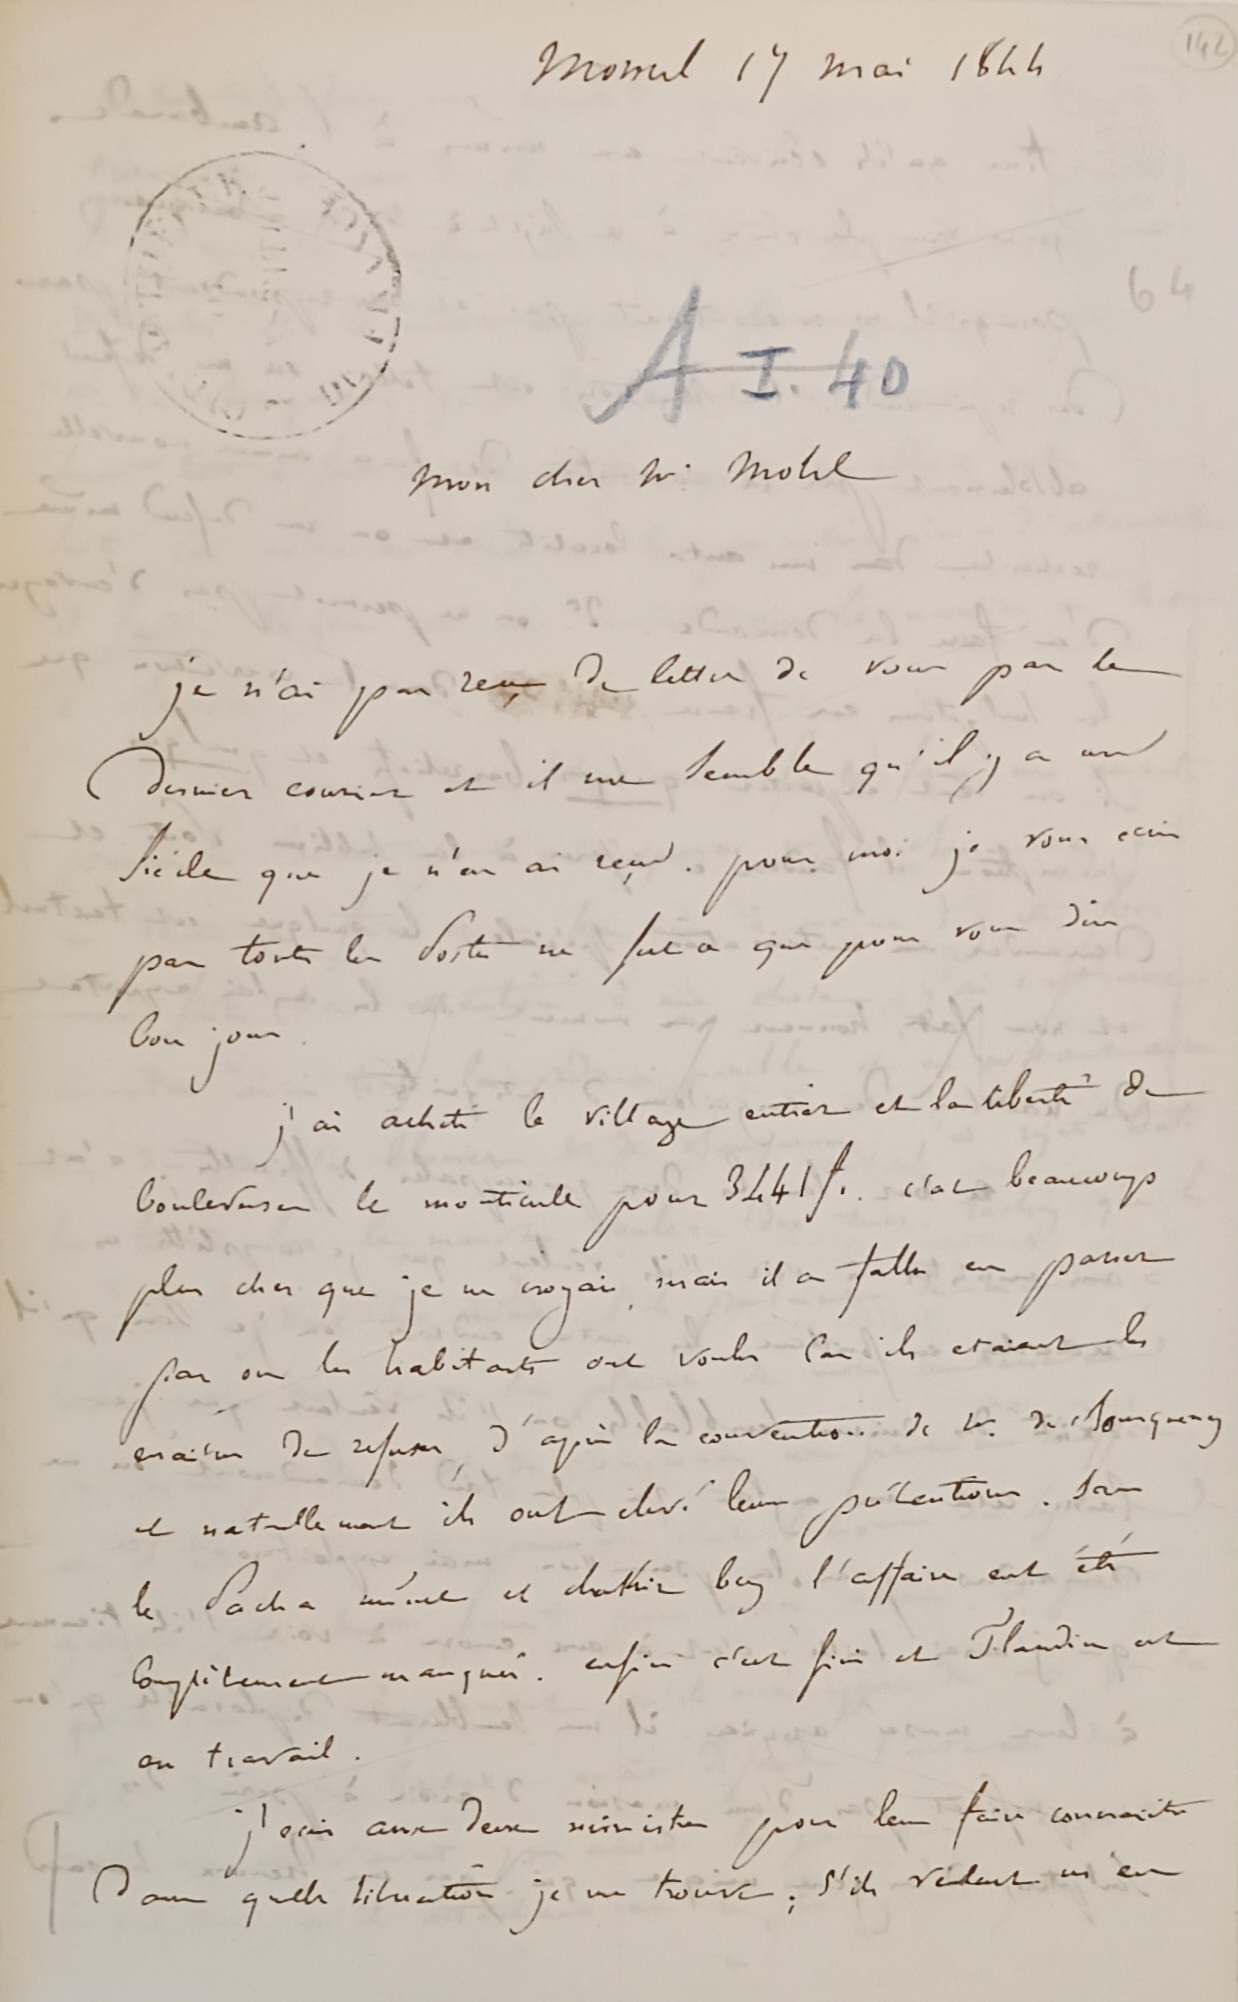 142
Mossul 17 mai 1844
64
A I. 40
mon cher Mr. Mohl
je n'ai pas reçu de lettre de vous par le
dernier courrier et il me semble qu'il y a un
siècle que je n'en ai reçu. pour moi je vous ecris
par toutes les postes ne fut ce que pour vous dire
bon jour
j'ai acheté le village entier et la liberté de
bouleverser le monticule pour 3441 f. c'est beaucoup
plus cher que je ne croyais, mais il a fallu en passer
par ou les habitants ont voulu car ils etaient les
maitres de refuser, d'après la convention de Mr. de Bourqueney
et naturellement ils ont elevé leurs prétentions. sans
le Pacha même et chakir bey l'affaire eut été
complètement manquée. enfin c'est fini et Flandin est
au travail.
j'ecris aux deux ministres pour leur faire connaitre
dans quelle situation je me trouve; s'ils veulent m'en